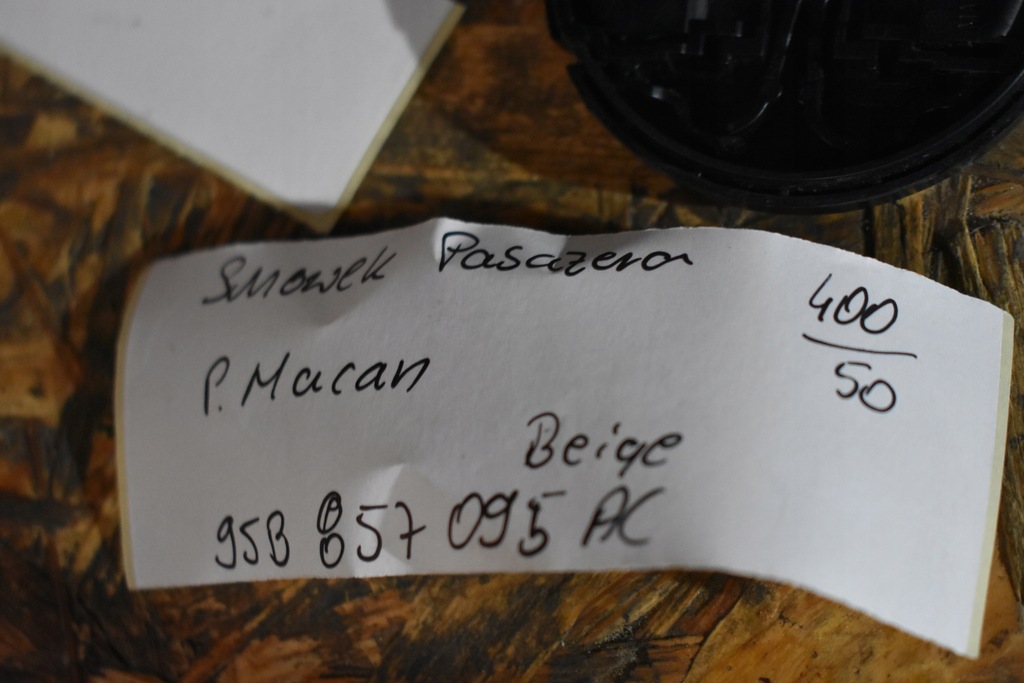 Schowek Pasazera
400
50
P. Macan
Beige
95B 857 095 AC